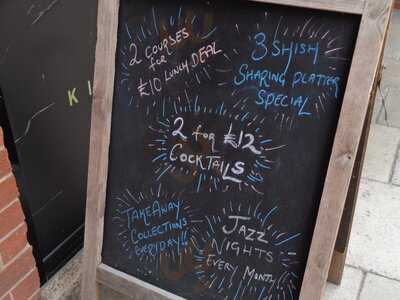 2 COURSES
for
£10 LUNCH DEAL
3 SHISH
SHARING PLATTER
SPECIAL
2 for £12
COCKTAILS
TAKEAWAY
COLLECTIONS
EVERYDAY!!
JAZZ
NIGHTS
EVERY MONTH
K